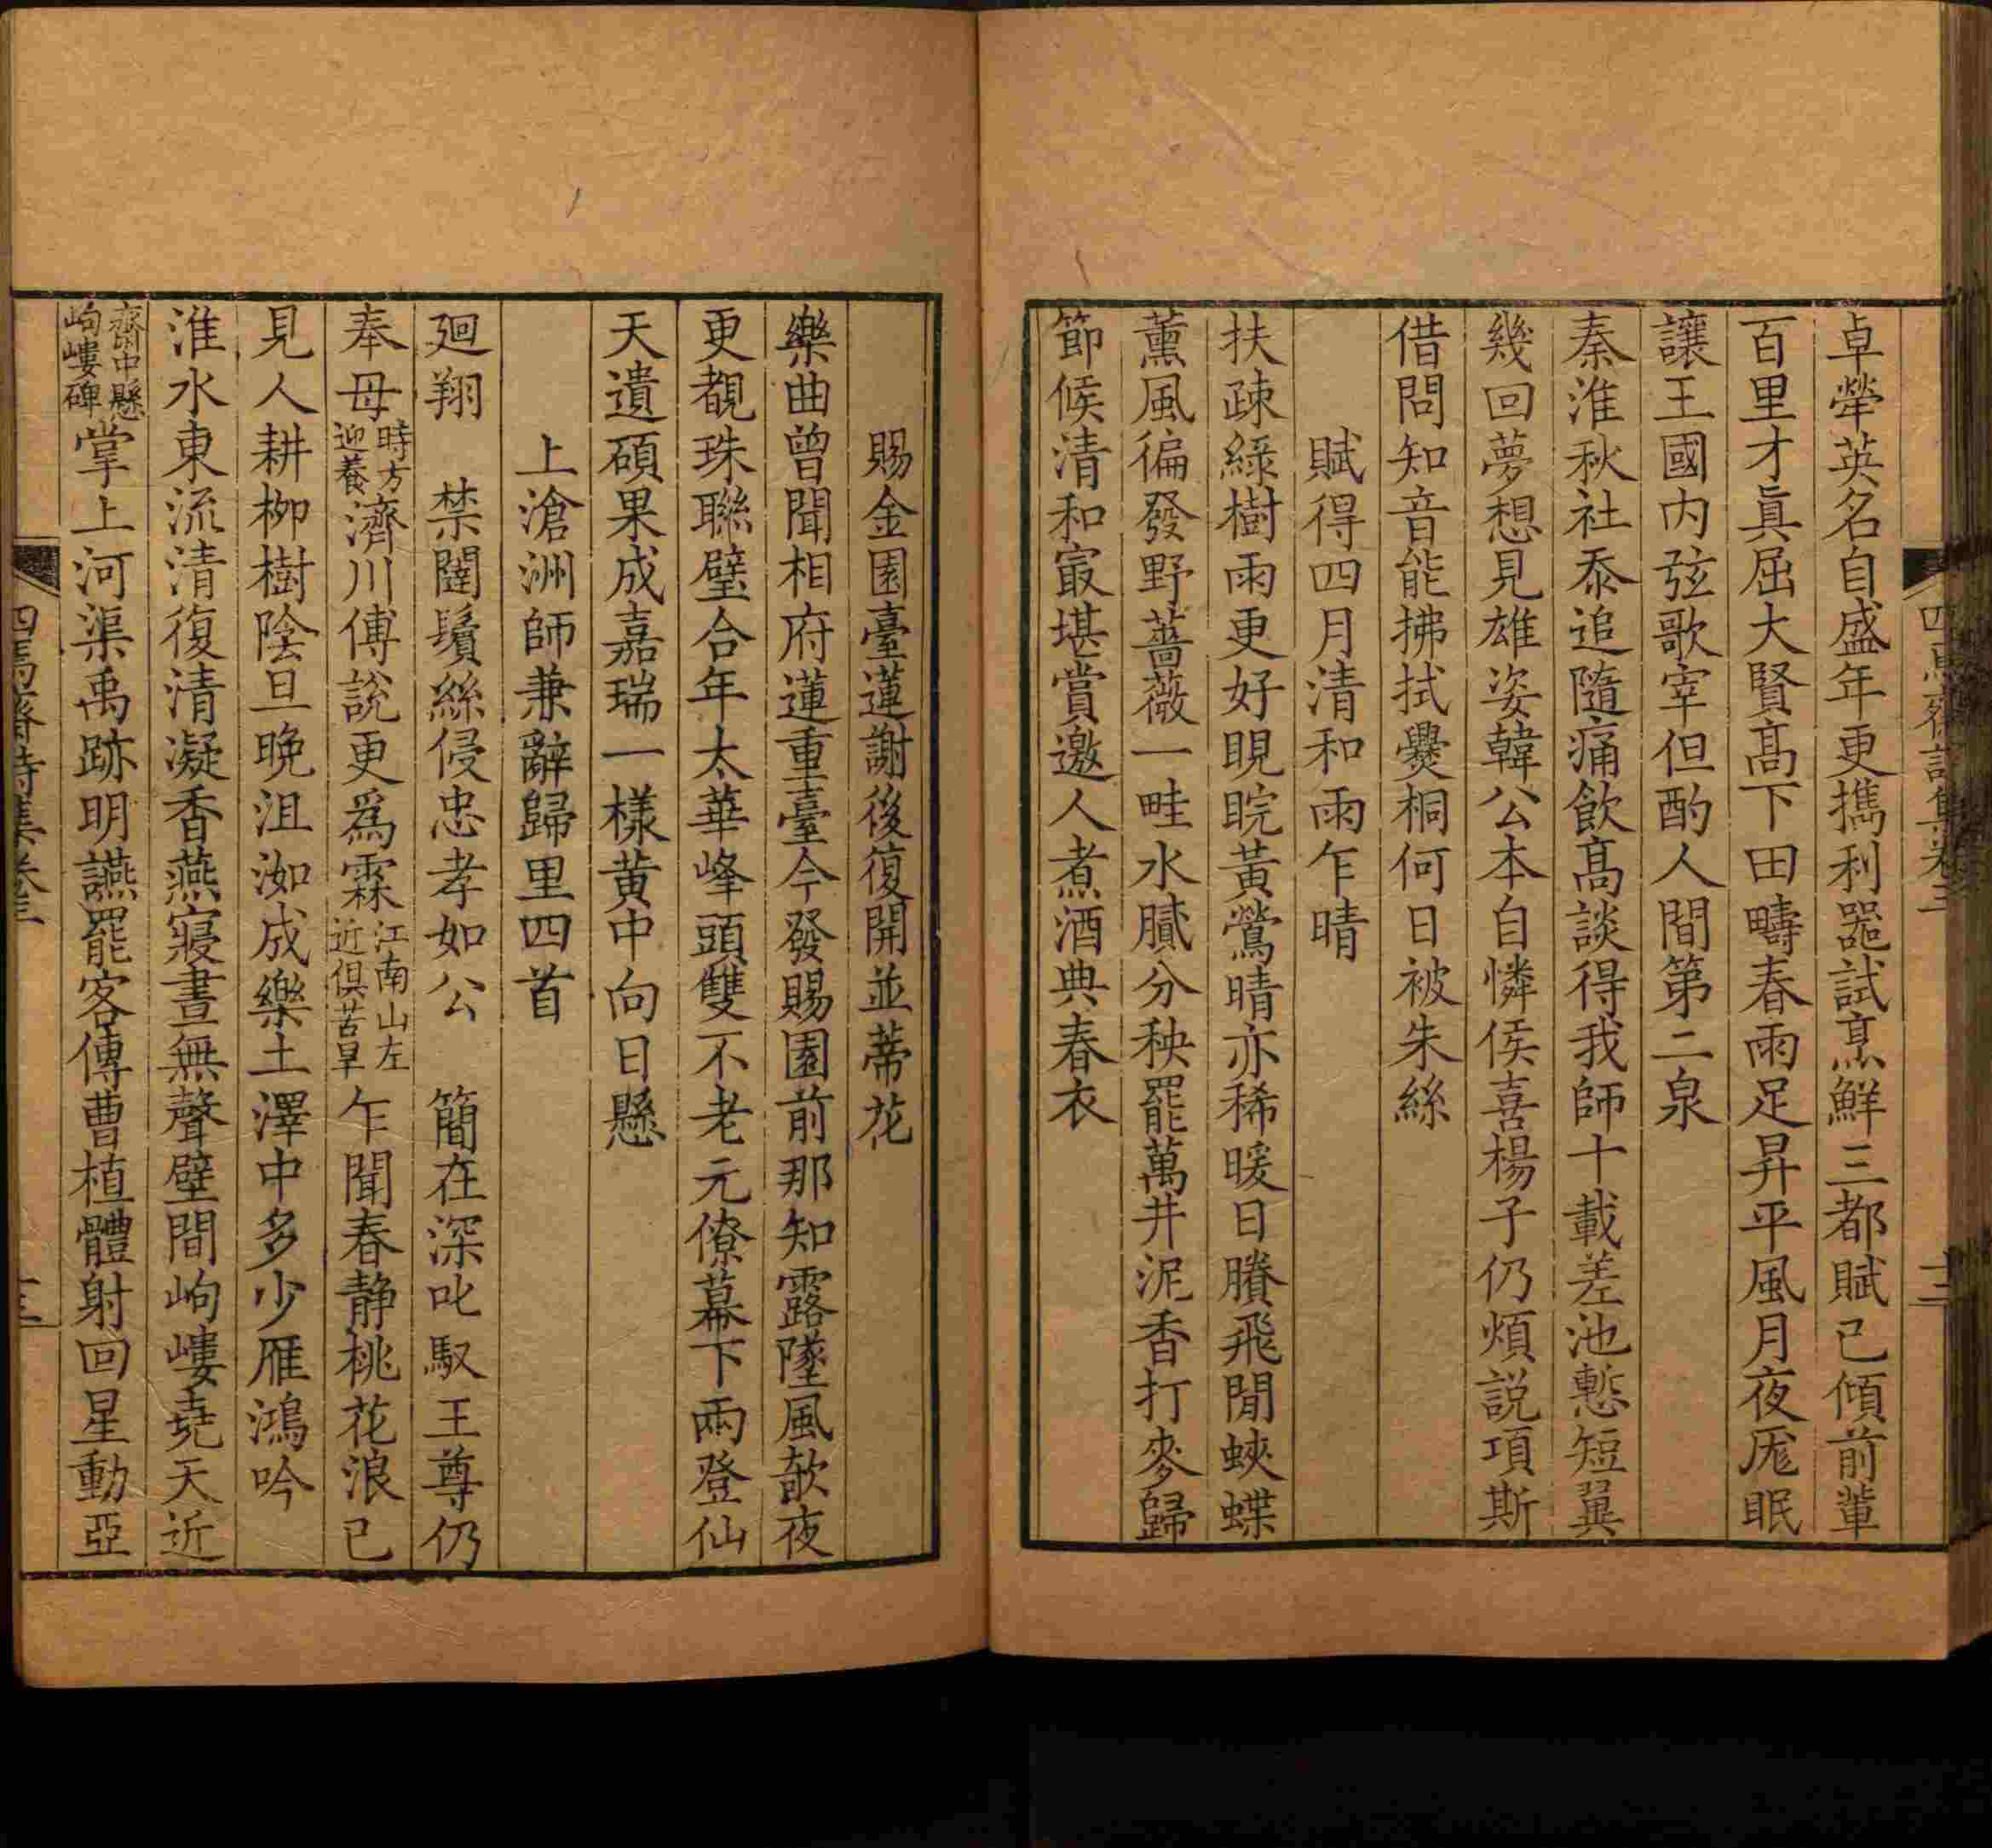 卓犖英名自盛年更攜利器試烹鮮三都賦已傾前輩
百里才眞屈大賢高下田疇春雨足昇平風月夜厖眠
讓王國內弦歌宰但酌人間第二泉
秦淮秋社忝追隨痛飲高談得我師十載差池慙短翼
幾回夢想見雄姿韓公本自憐侯喜楊子仍煩説項斯
借問知音能拂拭爨桐何日被朱絲
賦得四月清和雨乍晴
扶疎綠樹雨更好睍睆黃鶯晴亦稀暖日賸飛閒蛺蝶
薰風徧發野薔薇一畦水膩分秧罷萬井泥香打麥歸
節候清和㝡堪賞邀人煮酒典春衣
賜金園臺蓮謝後復開並蒂花
樂曲曾聞相府蓮重臺今發賜園前那知露墜風欹夜
更覩珠聯璧合年太華峰頭雙不老元僚幕下兩登仙
天遺碩果成嘉瑞一樣黃中向日懸
上滄洲師兼辭歸里四首
廻翔 禁闥鬢絲侵忠孝如公 簡在深叱馭王尊仍
奉母時方迎養濟川傅説更爲霖江南山左近俱苦旱乍聞春静桃花浪已
見人耕柳樹陰旦晚沮洳成樂土澤中多少雁鴻吟
淮水東流清復清凝香燕寢晝無聲壁間岣嶁堯天近
齋中懸岣嶁碑掌上河渠禹跡明讌罷客傳曹植體射回星動亞
四焉齋詩集卷三